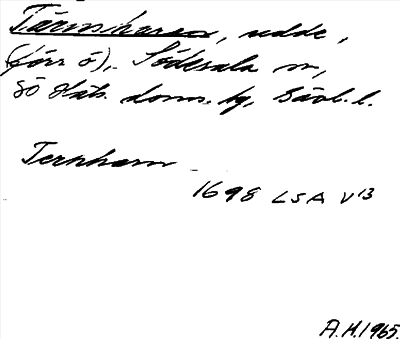 Tärnharen, udde,
(förr ö), Söderala sn,
Sö Häls. doms. hg, Gävl. l.
Ternharn
1698 LSA V 13
A.H. 1965.